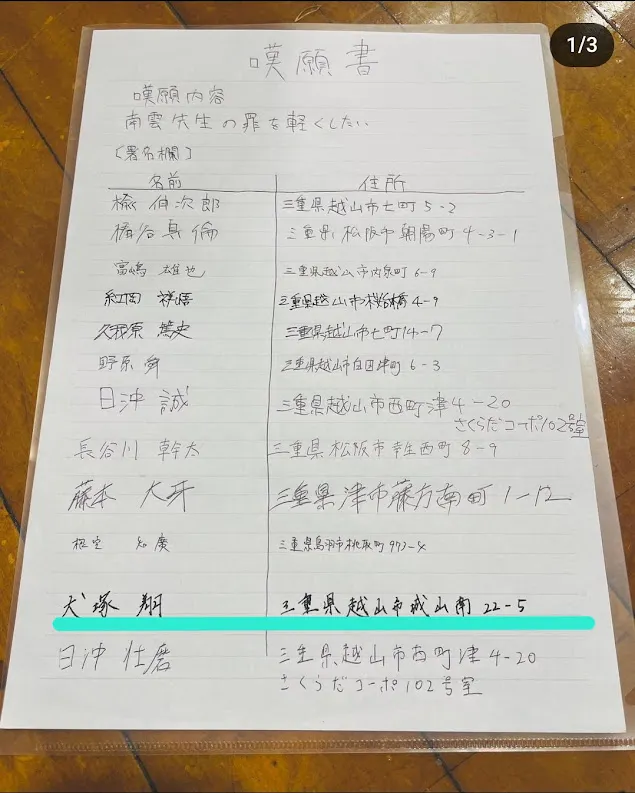 1/3
嘆願書
嘆願内容
南雲先生の罪を軽くしたい
〔署名欄〕
名前 住所
楡 伸次郎 三重県越山市七町5-2
椿谷真倫 三重県松阪市朝陽町4-3-1
富嶋 雄也 三重県越山市内原町6-9
紅岡 祥悟 三重県越山市桜橋4-9
久我原 篤史 三重県越山市七町14-7
野原 舜 三重県越山市白田津町6-3
日沖 誠 三重県越山市西町津4-20
さくらだコーポ102号室
長谷川 幹太 三重県松阪市幸生西町8-9
藤本 大牙 三重県津市藤方南町1-12
根室 知廣 三重県鳥羽市桃取町973-4
犬塚 翔 三重県越山市城山南22-5
日沖 壮磨 三重県越山市西町津4-20
さくらだコーポ102号室